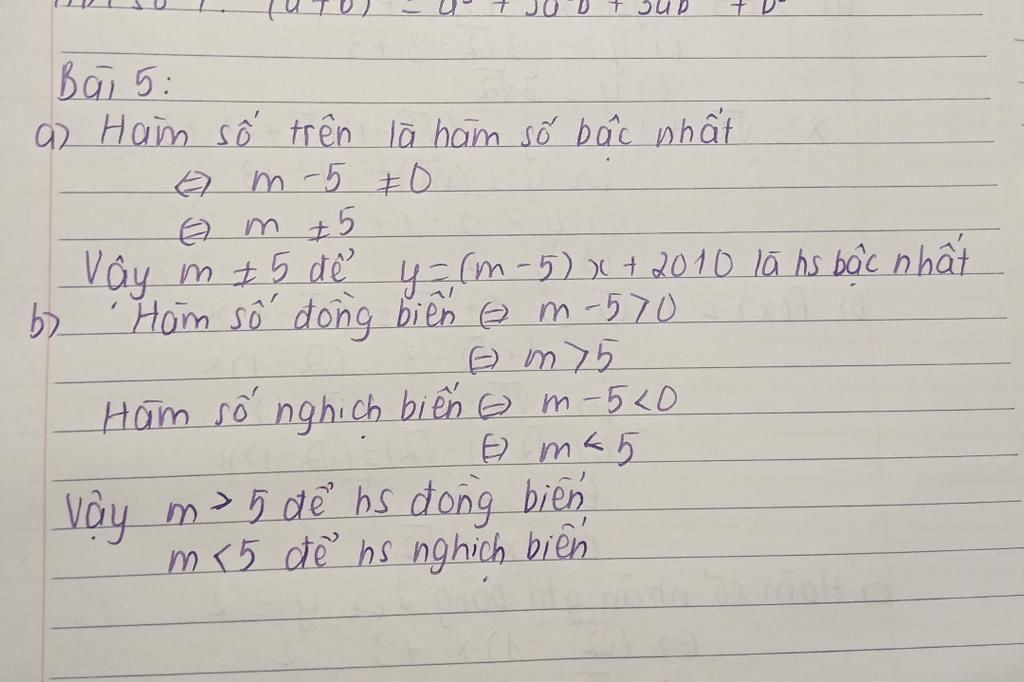 (a+b)³ = a³ + 3a²b + 3ab² + b³
Bài 5:
a) Hàm số trên là hàm số bậc nhất
⇔ m - 5 ≠ 0
⇔ m ≠ 5
Vậy m ≠ 5 để y = (m - 5) x + 2010 là hs bậc nhất
b) Hàm số đồng biến ⇔ m - 5 > 0
⇔ m > 5
Hàm số nghịch biến ⇔ m - 5 < 0
⇔ m < 5
Vậy m > 5 để hs đồng biến
m < 5 để hs nghịch biến